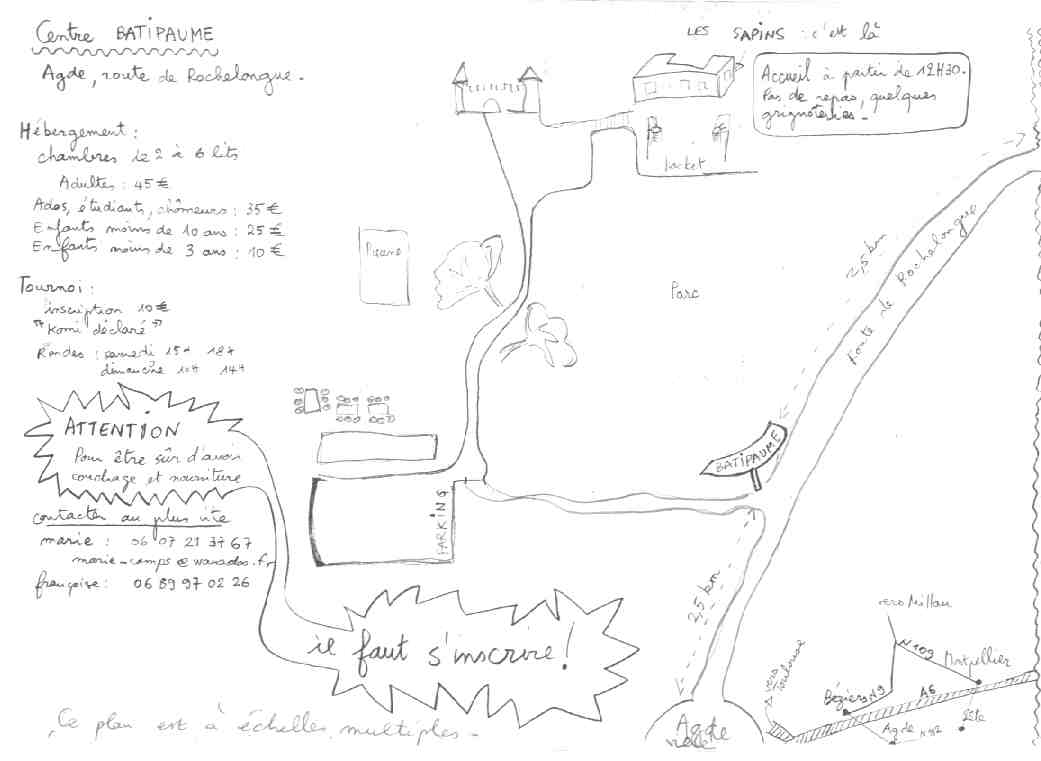 Centre BATIPAUME
Agde, route de Rochelongue.
Hébergement :
chambres de 2 à 6 lits
Adultes : 45 €
Ados, étudiants, chômeurs : 35 €
Enfants moins de 10 ans : 25 €
Enfants moins de 3 ans : 10 €
Tournoi :
inscription 10 €
"Komi déclaré"
Rondes : samedi 15H 18H
dimanche 10H 14H
ATTENTION
Pour être sûr d'avoir
couchage et nourriture
contacter au plus vite
marie : 06 07 21 37 67
marie-camps@wanadoo.fr
françoise : 06 89 97 02 26
il faut s'inscrire !
Ce plan est à échelles multiples -
LES SAPINS : c'est là
Accueil à partir de 12H30.
Pas de repas, quelques
grignoteries -
Parc
PARKING
BATIPAUME
2,5 km
Route de Rochelongue
2,5 km
Agde
vers Toulouse
vers Millau
N 109
Montpellier
Béziers A9
A6
Sète
Agde